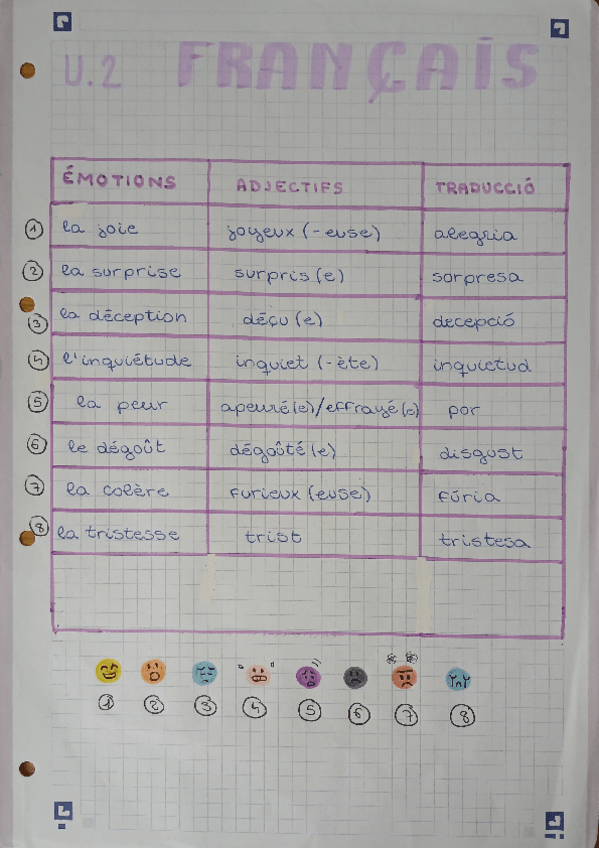 U.2 FRANÇAIS
ÉMOTIONS ADJECTIFS TRADUCCIÓ
1 la joie joyeux (-euse) alegria
2 la surprise surpris (e) sorpresa
3 la déception déçu (e) decepció
4 l'inquiétude inquiet (-ète) inquietud
5 la peur apeuré(e)/effrayé(e) por
6 le dégoût dégoûté (e) disgust
7 la colère furieux (euse) fúria
8 la tristesse trist tristesa
1 2 3 4 5 6 7 8